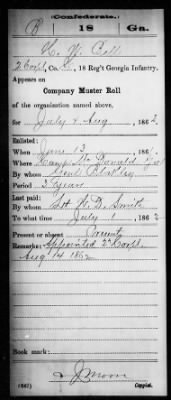 Confederate.
B 18 Ga.
2 Corpl, Co. , 18 Reg't Georgia Infantry.
Appears on
Company Muster Roll
of the organization named above,
for July & Aug, 1862.
Enlisted:
When June 13, 1861.
Where Camp McDonald
By whom
Period 3 years
Last paid:
By whom W. D. Smith
To what time July 1, 1862.
Present or absent Present
Remarks: Appointed 2d Corpl.
Aug 14 1862
Book mark:
J Moon
(667) Copyist.